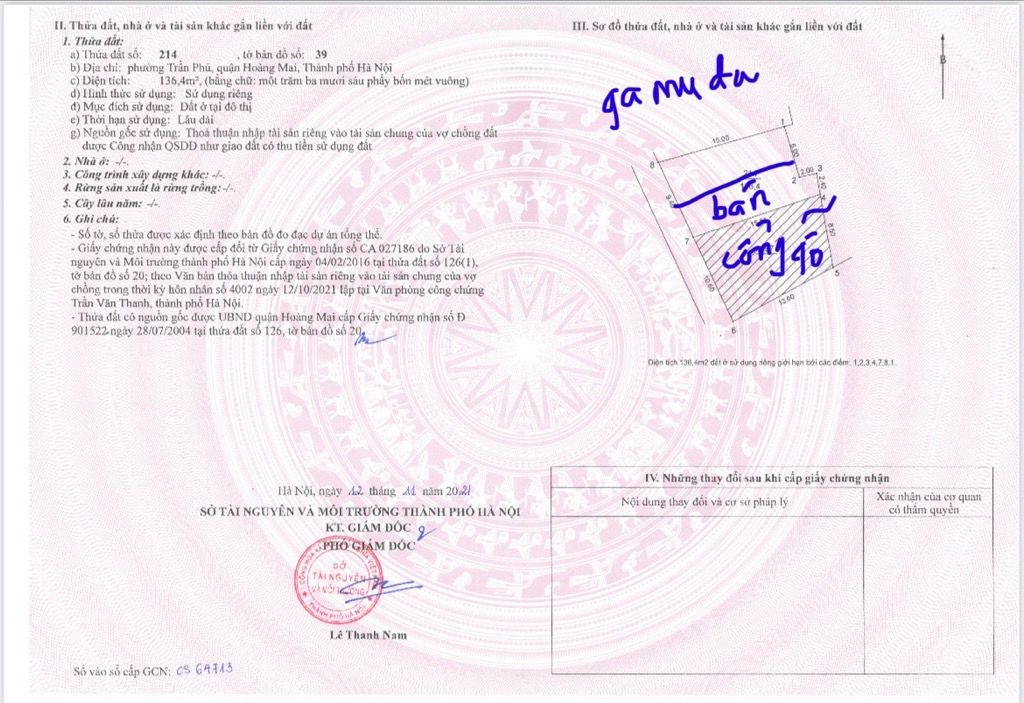 II. Thửa đất, nhà ở và tài sản khác gắn liền với đất
1. Thửa đất:
a) Thửa đất số: 214 , tờ bản đồ số: 39
b) Địa chỉ: phường Trần Phú, quận Hoàng Mai, Thành phố Hà Nội
c) Diện tích: 136,4m², (bằng chữ: một trăm ba mươi sáu phẩy bốn mét vuông)
d) Hình thức sử dụng: Sử dụng riêng
đ) Mục đích sử dụng: Đất ở tại đô thị
e) Thời hạn sử dụng: Lâu dài
g) Nguồn gốc sử dụng: Thoả thuận nhập tài sản riêng vào tài sản chung của vợ chồng đất
được Công nhận QSDĐ như giao đất có thu tiền sử dụng đất
2. Nhà ở: -/-.
3. Công trình xây dựng khác: -/-.
4. Rừng sản xuất là rừng trồng: -/-.
5. Cây lâu năm: -/-.
6. Ghi chú:
- Số tờ, số thửa được xác định theo bản đồ đo đạc dự án tổng thể.
- Giấy chứng nhận này được cấp đổi từ Giấy chứng nhận số CA 027186 do Sở Tài
nguyên và Môi trường thành phố Hà Nội cấp ngày 04/02/2016 tại thửa đất số 126(1),
tờ bản đồ số 20; theo Văn bản thỏa thuận nhập tài sản riêng vào tài sản chung của vợ
chồng trong thời kỳ hôn nhân số 4002 ngày 12/10/2021 lập tại Văn phòng công chứng
Trần Văn Thanh, thành phố Hà Nội.
- Thửa đất có nguồn gốc được UBND quận Hoàng Mai cấp Giấy chứng nhận số Đ
901522 ngày 28/07/2004 tại thửa đất số 126, tờ bản đồ số 20.
Hà Nội, ngày 12 tháng 11 năm 2021
SỞ TÀI NGUYÊN VÀ MÔI TRƯỜNG THÀNH PHỐ HÀ NỘI
KT. GIÁM ĐỐC
PHÓ GIÁM ĐỐC
SỞ
TÀI NGUYÊN
VÀ MÔI TRƯỜNG
THÀNH PHỐ HÀ NỘI
Lê Thanh Nam
Số vào sổ cấp GCN: CS 64713
III. Sơ đồ thửa đất, nhà ở và tài sản khác gắn liền với đất
B
ga mu da
1
15.00
8
2.00 3
2
2.40
4
bán
7
cổng gõ
8.50
10.60
5
13.00
6
Diện tích 136,4m2 đất ở sử dụng riêng giới hạn bởi các điểm: 1,2,3,4,7,8,1.
IV. Những thay đổi sau khi cấp giấy chứng nhận
Nội dung thay đổi và cơ sở pháp lý
Xác nhận của cơ quan
có thẩm quyền